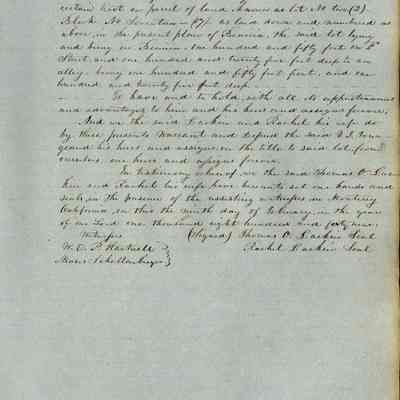 certain lot or parcel of land known as lot No two (2)
Block No Seventeen (17), as laid down and numbered as
above, in the present plan of Benicia, the said lot lying
and being in Benicia, one hundred and fifty feet on
Street and one hundred and twenty five feet deep to an
alley, being one hundred and fifty feet front, and one
hundred and twenty five feet deep
To have and to hold, with all its appurtenances
and advantages to him and his heirs and assigns forever,
And we the said Larkin and Rachel his wife do
by these presents Warrant and defend the said
his heirs and assigns, in the title to said lot, from
ourselves our heirs and assigns forever.
In testimony whereof, we the said Thomas O. Lar
kin and Rachel his wife have hereunto set our hands and
seals, in the presence of the assisting witnesses, in Monterey
California, on this the ninth day of February, in the year
of our Lord one thousand eight hundred and forty nine.
Witnesses (Signed) Thomas O. Larkin Seal
W. E. P. Hartnell } Rachel Larkin Seal
Moris Schollenberger }